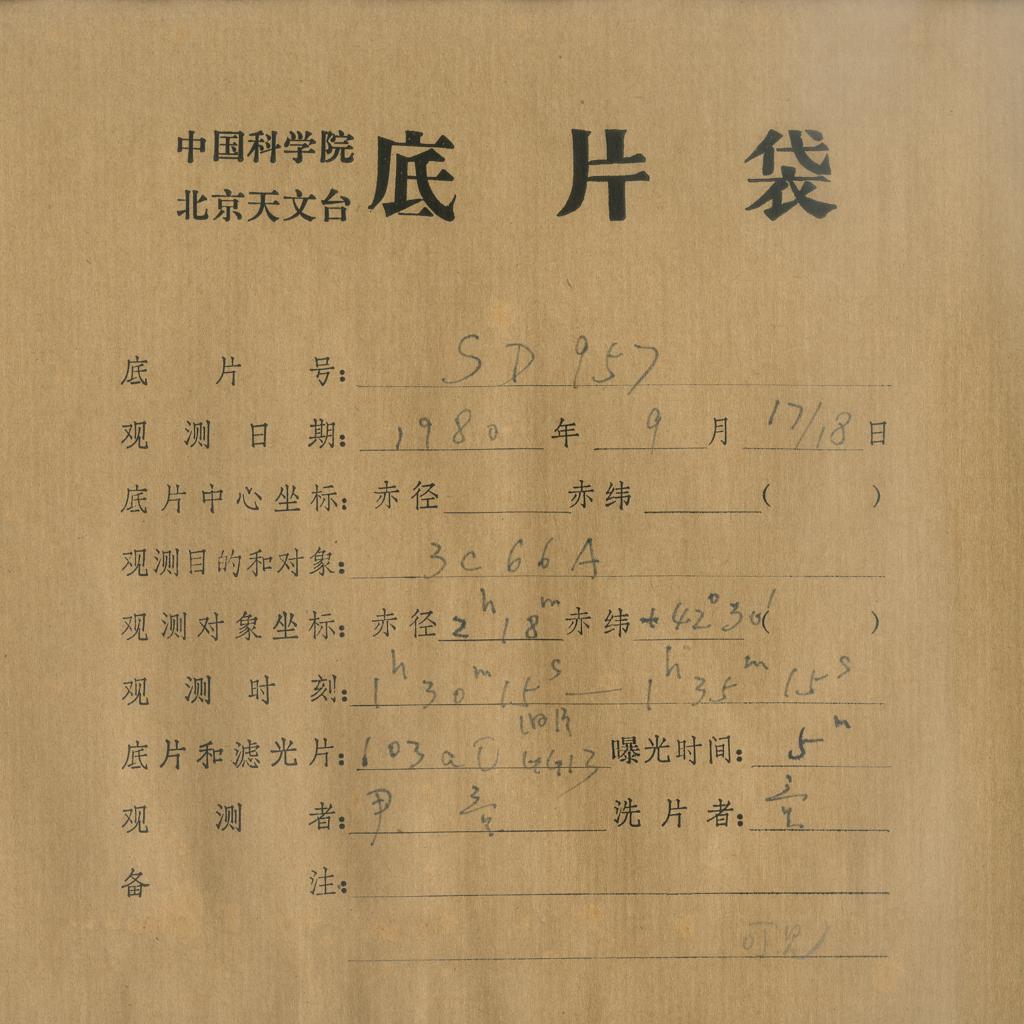 中国科学院 底片袋
北京天文台
底片号: SD 957
观测日期: 1980 年 9 月 17/18 日
底片中心坐标: 赤径 赤纬 ( )
观测目的和对象: 3C66A
观测对象坐标: 赤径 2h 18m 赤纬 +42°30′ ( )
观测时刻: 1h 30m 15s — 1h 35m 15s
底片和滤光片: 103aD 曝光时间: 5m
观测者: 洗片者:
备注: